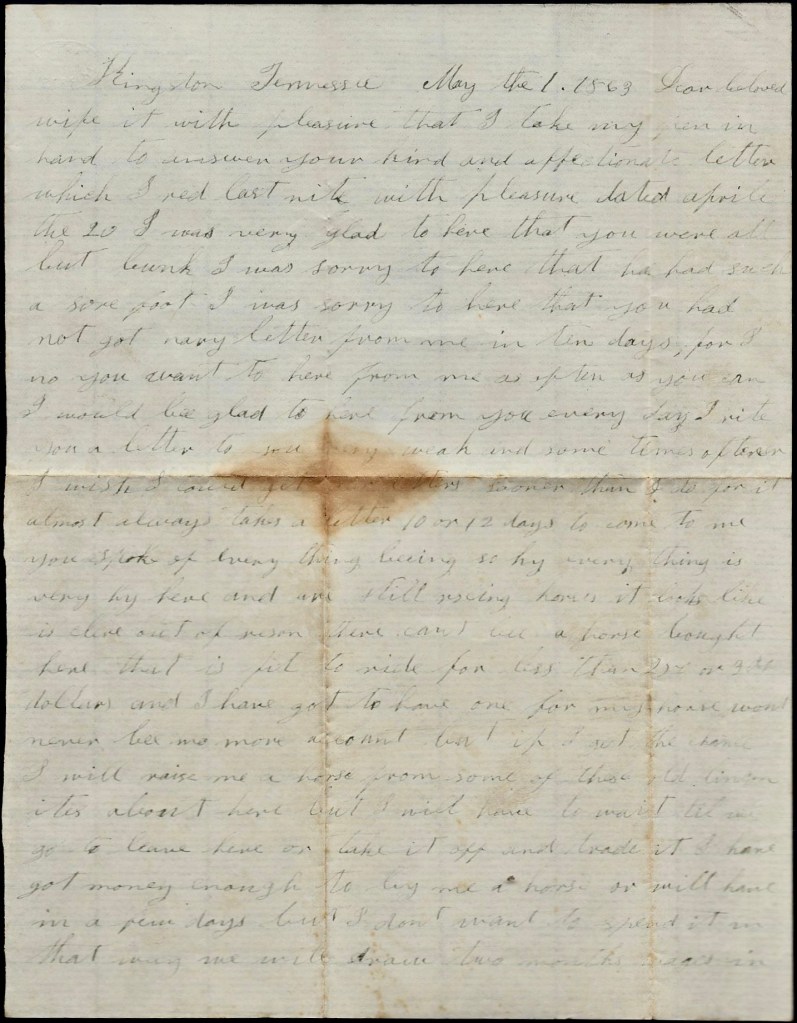 Kingston Tennessee May the 1. 1863 Dear beloved
wife it with pleasure that I take my pen in
hand to answer your kind and affectionate letter
which I red last nite with pleasure dated aprile
the 20 I was very glad to here that you were all
but I was sorry to here that he had such
a sore foot I was sorry to here that you had
not got nary letter from me in ten days, for I
no you want to here from me as often as you can
I would bee glad to here from you every day I rite
you a letter to you weak and some times oftener
I wish I could get sooner than I do for it
almost always takes a letter 10 or 12 days to come to me
you spoke of every thing beeing so hy every thing is
very hy here and are still riseing horses it looks like
is clere out of reson there cant bee a horse bought
here that is fit to ride for less than or
dollars and I have got to have one for my horse wont
never bee no more account but if I get the chance
I will raise me a horse from some of these old linken
ites about here but I will have to wait tel we
go to leave here or take it off and trade it I have
got money enough to by me a horse or will have
in a few days but I dont want to spend it in
that way we will draw two months in